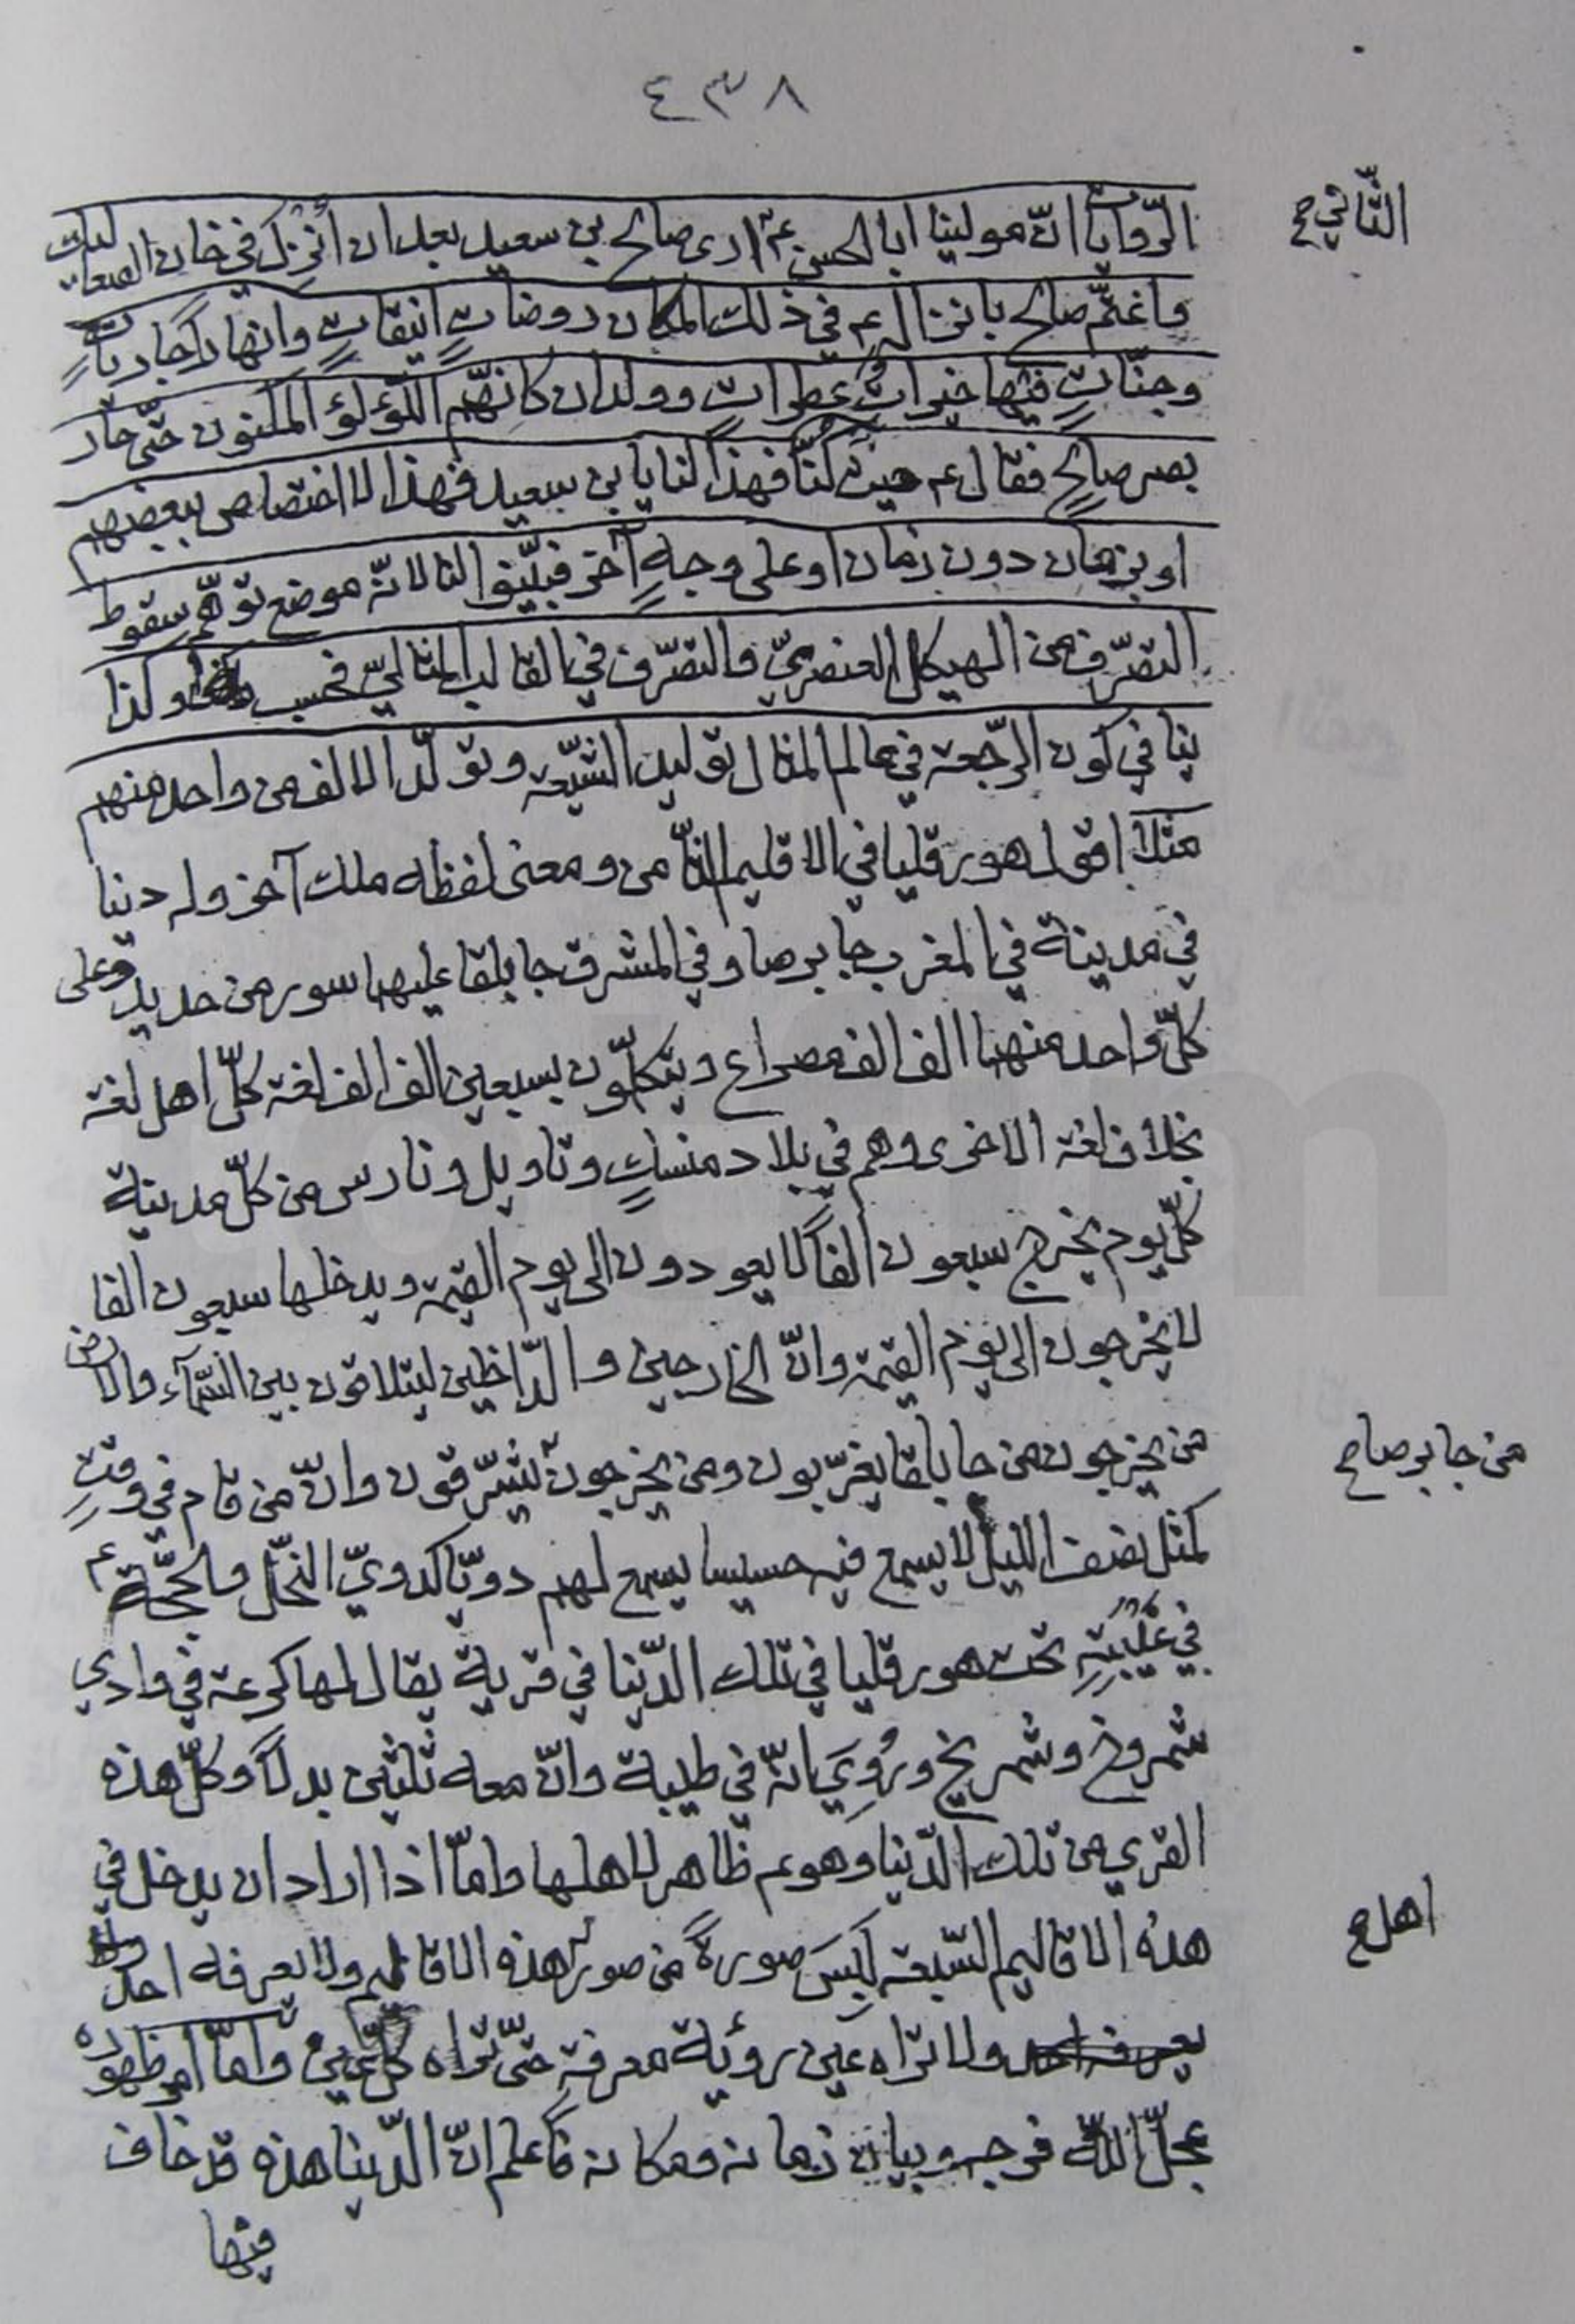 ٤٣٨
الثّاني ح
الرّوايات انّ مولينا ابا الحسن عم ارى صالح بن سعيد بعد ان اُنزِل في خان الصعاليك
واغتمّ صالح بانزاله عم في ذلك المكان روضاتٍ انيقاتٍ وانهاراً جارياتٍ
وجنّاتٍ فيها خيراتٌ عطراتٍ وولدان كانّهم اللّؤلؤ المكنون حتّى حار
بصر صالحٍ فقال عم حيث كنّا فهذا لنا يا بن سعيد فهذا لا اختصاص ببعضهم
او بزمان دون زمان او على وجهٍ آخر فبيّنوا لنا لانّه موضع توهّم سقوط
التصرّف من الهيكل العنصريّ والتصرّف في القالب المثاليّ فحسب وكذا
ينافي كون الرّجعة في عالم المثال توليد الشّيعة وتولّد الالف من واحد منهم
مثلاً اقول هورقليا في الاقليم الثّامن ومعنى لفظه ملك آخر وله دنيا
في مدينة في المغرب جابرصا وفي المشرق جابلقا عليهما سور من حديد وعلى
كلّ واحد منهما الف الف مصراع ويتكلّمون بسبعين الف الف لغة كلّ اهل لغة
بخلاف لغة الاخرى وهم في بلاد منسكٍ وتاويل وتارس من كلّ مدينة
كلّ يوم يخرج سبعون الفاً لا يعودون الى يوم القيمة ويدخلها سبعون الفا
لا يخرجون الى يوم القيمة وانّ الخارجين والدّاخلين ليتلاقون بين السّمآء والارض
من يخرجون من جابلقا يغرّبون ومن يخرجون يُشرّقون وانّ من قام في وقتٍ
من جابرصا ح
كمثل نصف الليل لا يسمع فيه حسيسا يسمع لهم دويّا كدويّ النحّل والحجّة عم
في غَيْبَتِهِ تحت هورقليا في تلك الدّنيا في قرية يقال لها كرعة في وادي
شمروخ وشمريخ ورُوِيَ انّه في طيبة وانّ معه ثلثين بدلاً وكلّ هذه
القرى من تلك الدّنيا وهو عم ظاهر لاهلها وامّا اذا اراد ان يدخل في
هذه الاقاليم السّبعة لَبِسَ صورةً من صور هذه الاقاليم ولا يعرفه احد
اهل ح
ولا تراه عين رؤية معرفة حتّى تراه كلّ عين وامّا امر ظهوره
عجّل اللّه فرجه وبيان زمانه ومكانه فاعلم انّ الدّنيا هذه قد خاف
فيها